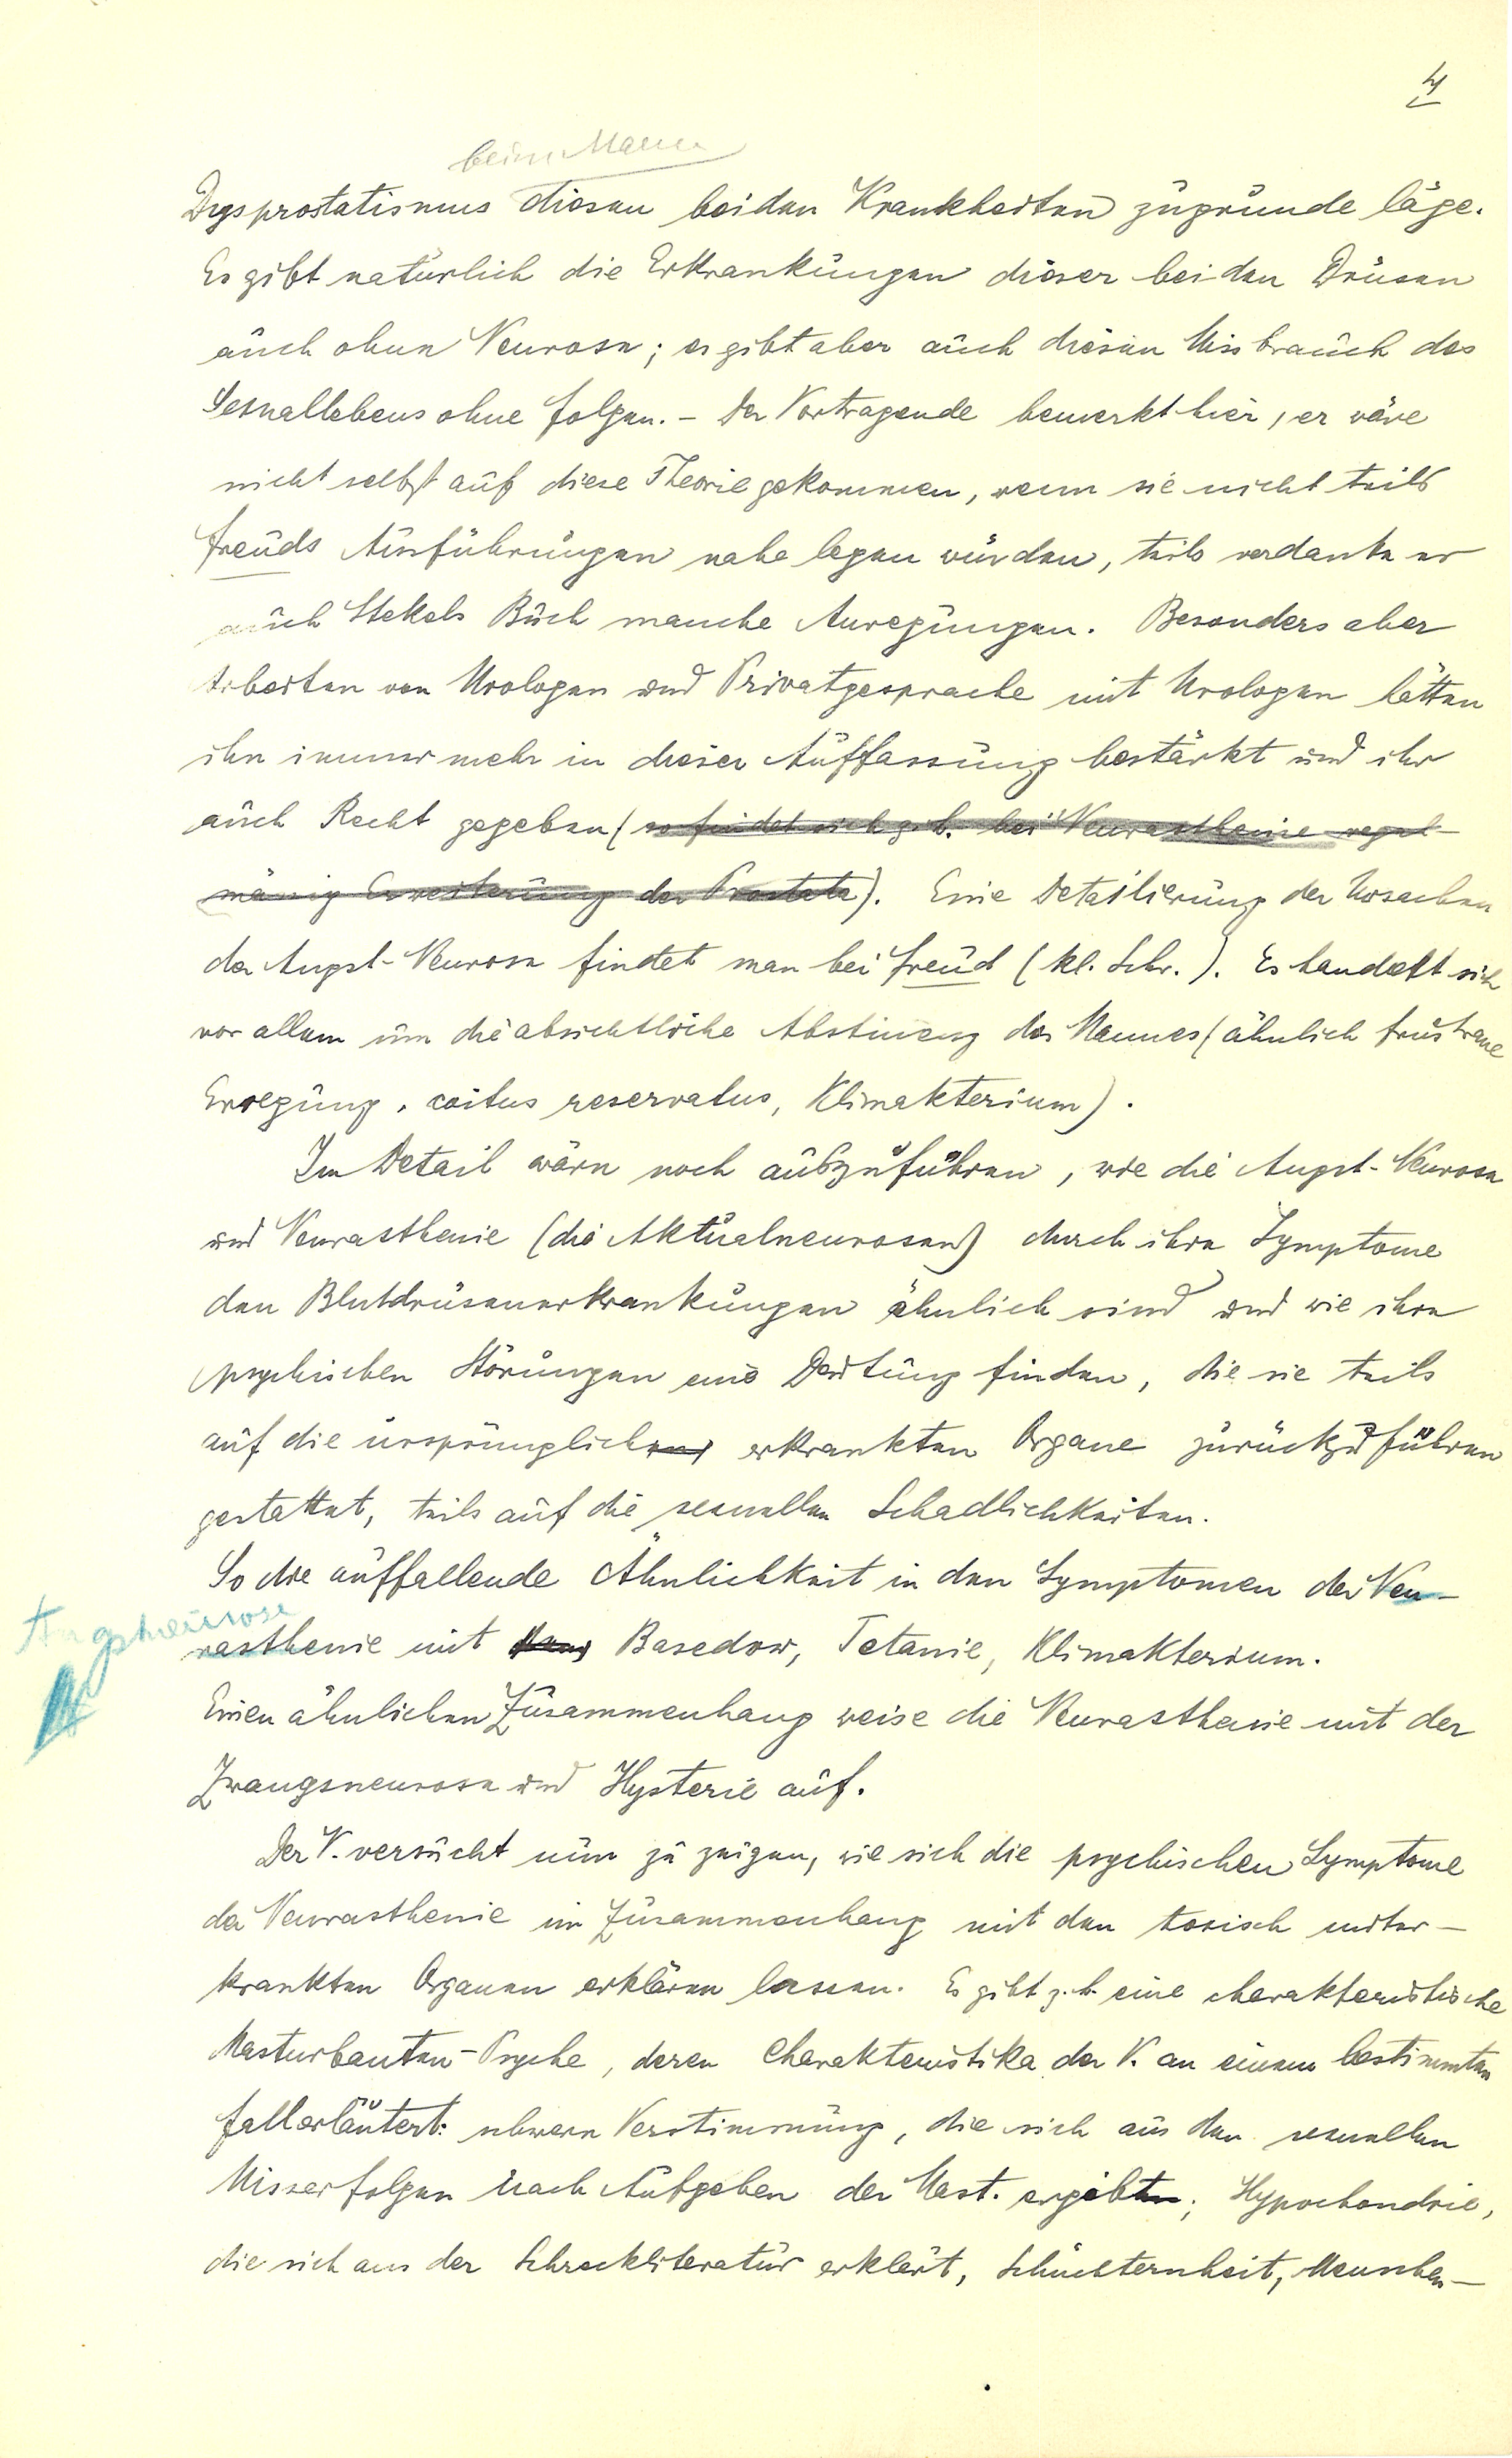 4
beim Manne
Dysprostatismus diesen beiden Krankheiten zugrunde läge.
Es gibt natürlich die Erkrankungen dieser beiden Drüsen
auch ohne Neurose; es gibt aber auch diesen Missbrauch des
Sexuallebens ohne Folgen. – Der Vortragende bemerkt hier, er wäre
nicht selbst auf diese Theorie gekommen, wenn sie nicht teils
Freuds Ausführungen nahe legen würden, teils verdanke er
auch Stekels Buch manche Anregungen. Besonders aber
Arbeiten von Urologen und Privatgespräche mit Urologen hätten
ihn immer mehr in dieser Auffassung bestärkt und ihr
auch Recht gegeben (so findet sich z.b. bei Neurasthenie regel-
mässig Erweiterung der Prostata). Eine Detailierung der Ursachen
der Angst-Neurose findet man bei Freud (kl. Schr.). Es handelt sich
vor allem um die absichtliche Abstinenz des Mannes (ähnlich frustrane
Erregung, coitus reservatus, Klimakterium).
Im Detail wäre noch auszuführen, wie die Angst-Neurose
und Neurasthenie (die Aktualneurosen) durch ihre Symptome
den Blutdrüsenerkrankungen ähnlich sind und wie ihre
psychischen Störungen eine Deutung finden, die sie teils
auf die ursprünglichen erkrankten Organe zurückzuführen
gestattet, teils auf die sexuellen Schädlichkeiten.
So die auffallende Ähnlichkeit in den Symptomen der Neu-
Angstneurose
rasthenie mit Basedow, Tetanie, Klimakterium.
Einen ähnlichen Zusammenhang weise die Neurasthenie mit der
Zwangsneurose und Hysterie auf.
Der V. versucht nun zu zeigen, wie sich die psychischen Symptome
der Neurasthenie im Zusammenhang mit den toxisch miter-
krankten Organen erklären lassen. Es gibt z.b. eine charakteristische
Masturbanten-Psyche, deren Charakteristika der V. an einem bestimmten
Fall erläutert: schwere Verstimmung, die sich aus den sexuellen
Misserfolgen nach Aufgeben der Mast. ergibt; Hypochondrie,
die sich aus der Schreckliteratur erklärt, Schüchternheit, Menschen-